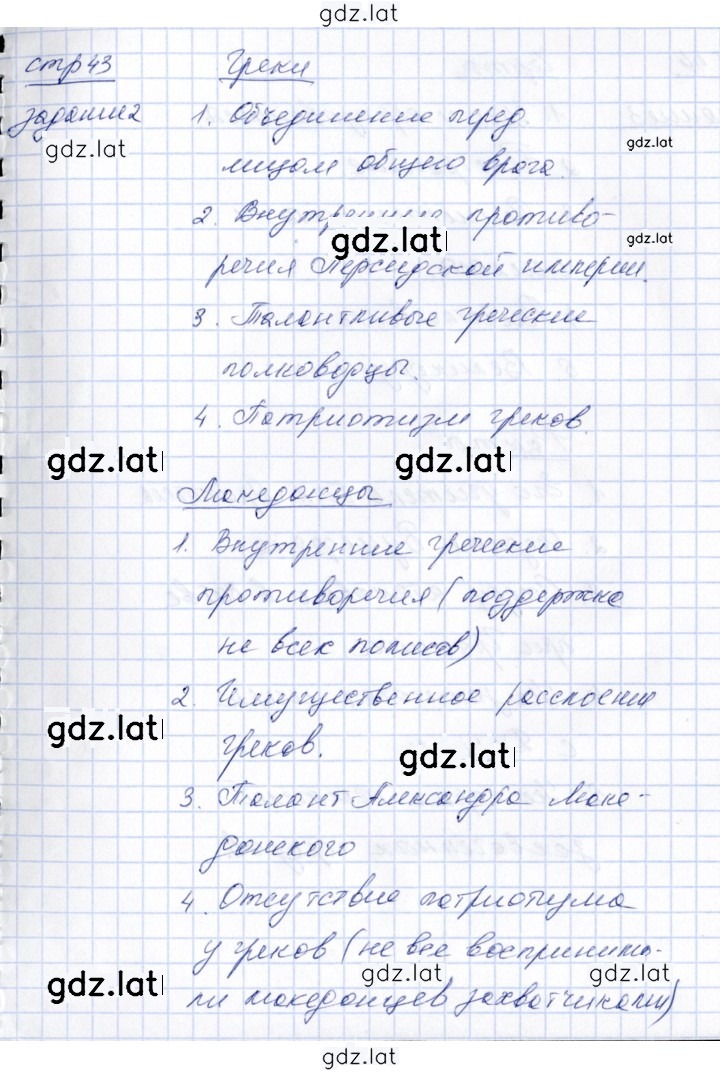 gdz.lat
стр 43 Греки
задание 2 1. Объединение перед
gdz.lat
лицом общего врага.
gdz.lat
2. Внутренние противо-
gdz.lat
gdz.lat
речия Персидской империи.
3. Талантливые греческие
полководцы.
4. Патриотизм греков.
gdz.lat gdz.lat
Македонцы
1. Внутренние греческие
противоречия (поддержка
не всех полисов)
2. Имущественное расслоение
gdz.lat
греков.
gdz.lat
3. Талант Александра Маке-
донского
4. Отсутствие патриотизма
у греков (не все воспринима-
gdz.lat gdz.lat gdz.lat
ли македонцев захватчиками)
gdz.lat